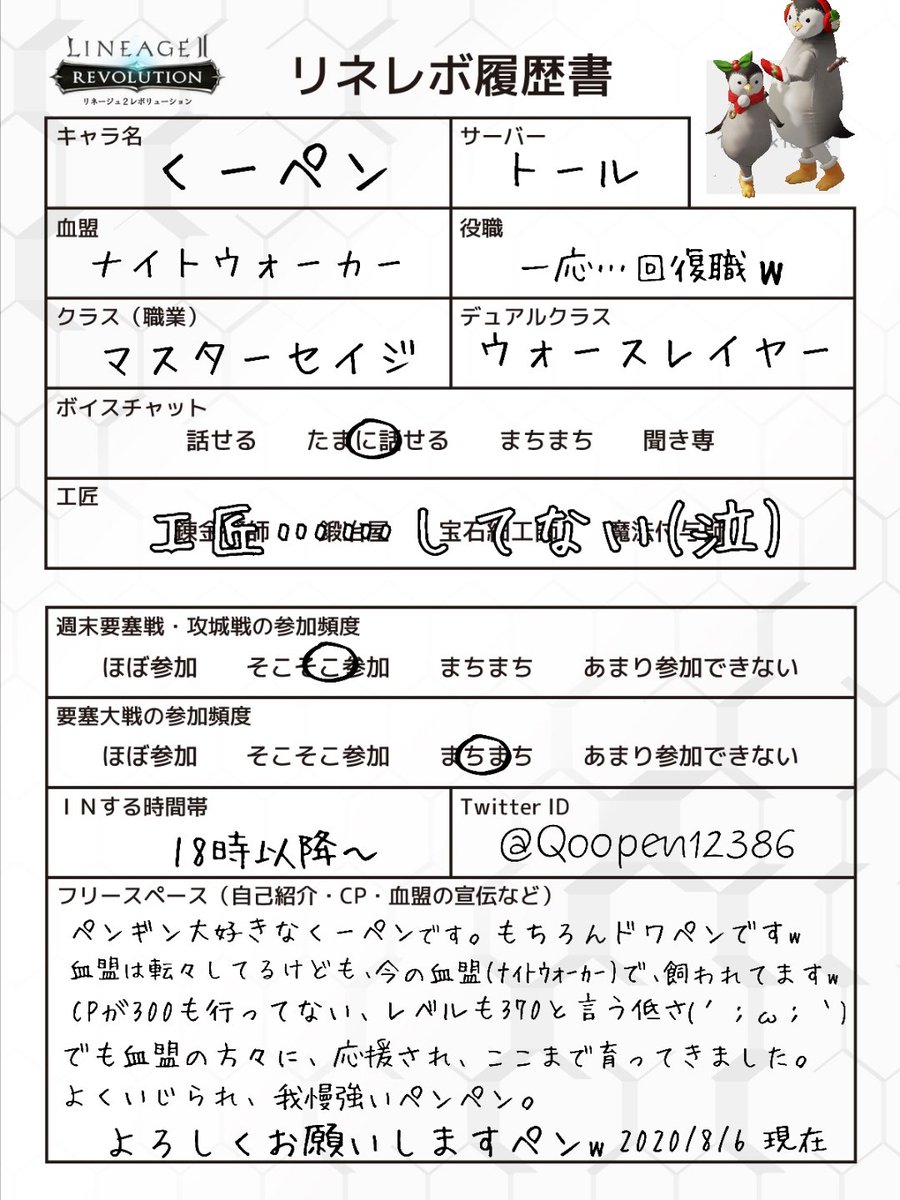 LINEAGE II
REVOLUTION
リネージュ2レボリューション
リネレボ履歴書
キャラ名
くーペン
サーバー
トール
血盟
ナイトウォーカー
役職
一応…回復職w
クラス（職業）
マスターセイジ
デュアルクラス
ウォースレイヤー
ボイスチャット
話せる たまに話せる まちまち 聞き専
工匠
工匠……してない(泣)
週末要塞戦・攻城戦の参加頻度
ほぼ参加 そこそこ参加 まちまち あまり参加できない
要塞大戦の参加頻度
ほぼ参加 そこそこ参加 まちまち あまり参加できない
ＩＮする時間帯
18時以降〜
Twitter ID
@Qoopen12386
フリースペース（自己紹介・CP・血盟の宣伝など）
ペンギン大好きなくーペンです。もちろんドワペンですw
血盟は転々してるけども、今の血盟(ﾅｲﾄｳｫｰｶｰ)で、飼われてますw
CPが300も行ってない、レベルも370と言う低さ(´；ω；｀)
でも血盟の方々に、応援され、ここまで育ってきました。
よくいじられ、我慢強いペンペン。
よろしくお願いしますペンw 2020/8/6 現在